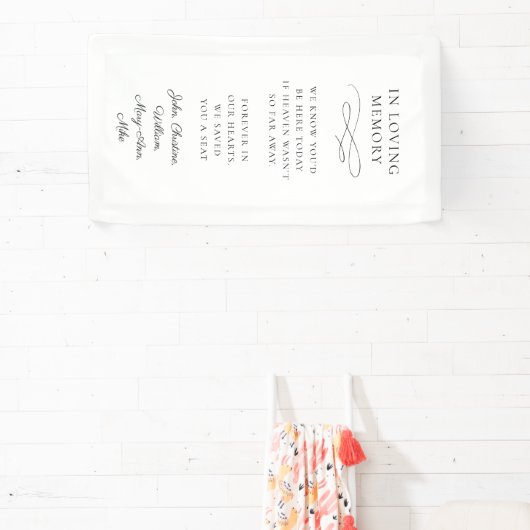 IN LOVING
MEMORY
WE KNOW YOU'D
BE HERE TODAY
IF HEAVEN WASN'T
SO FAR AWAY.
FOREVER IN
OUR HEARTS,
WE SAVED
YOU A SEAT
John, Christine,
William,
Mary-Ann,
Mike